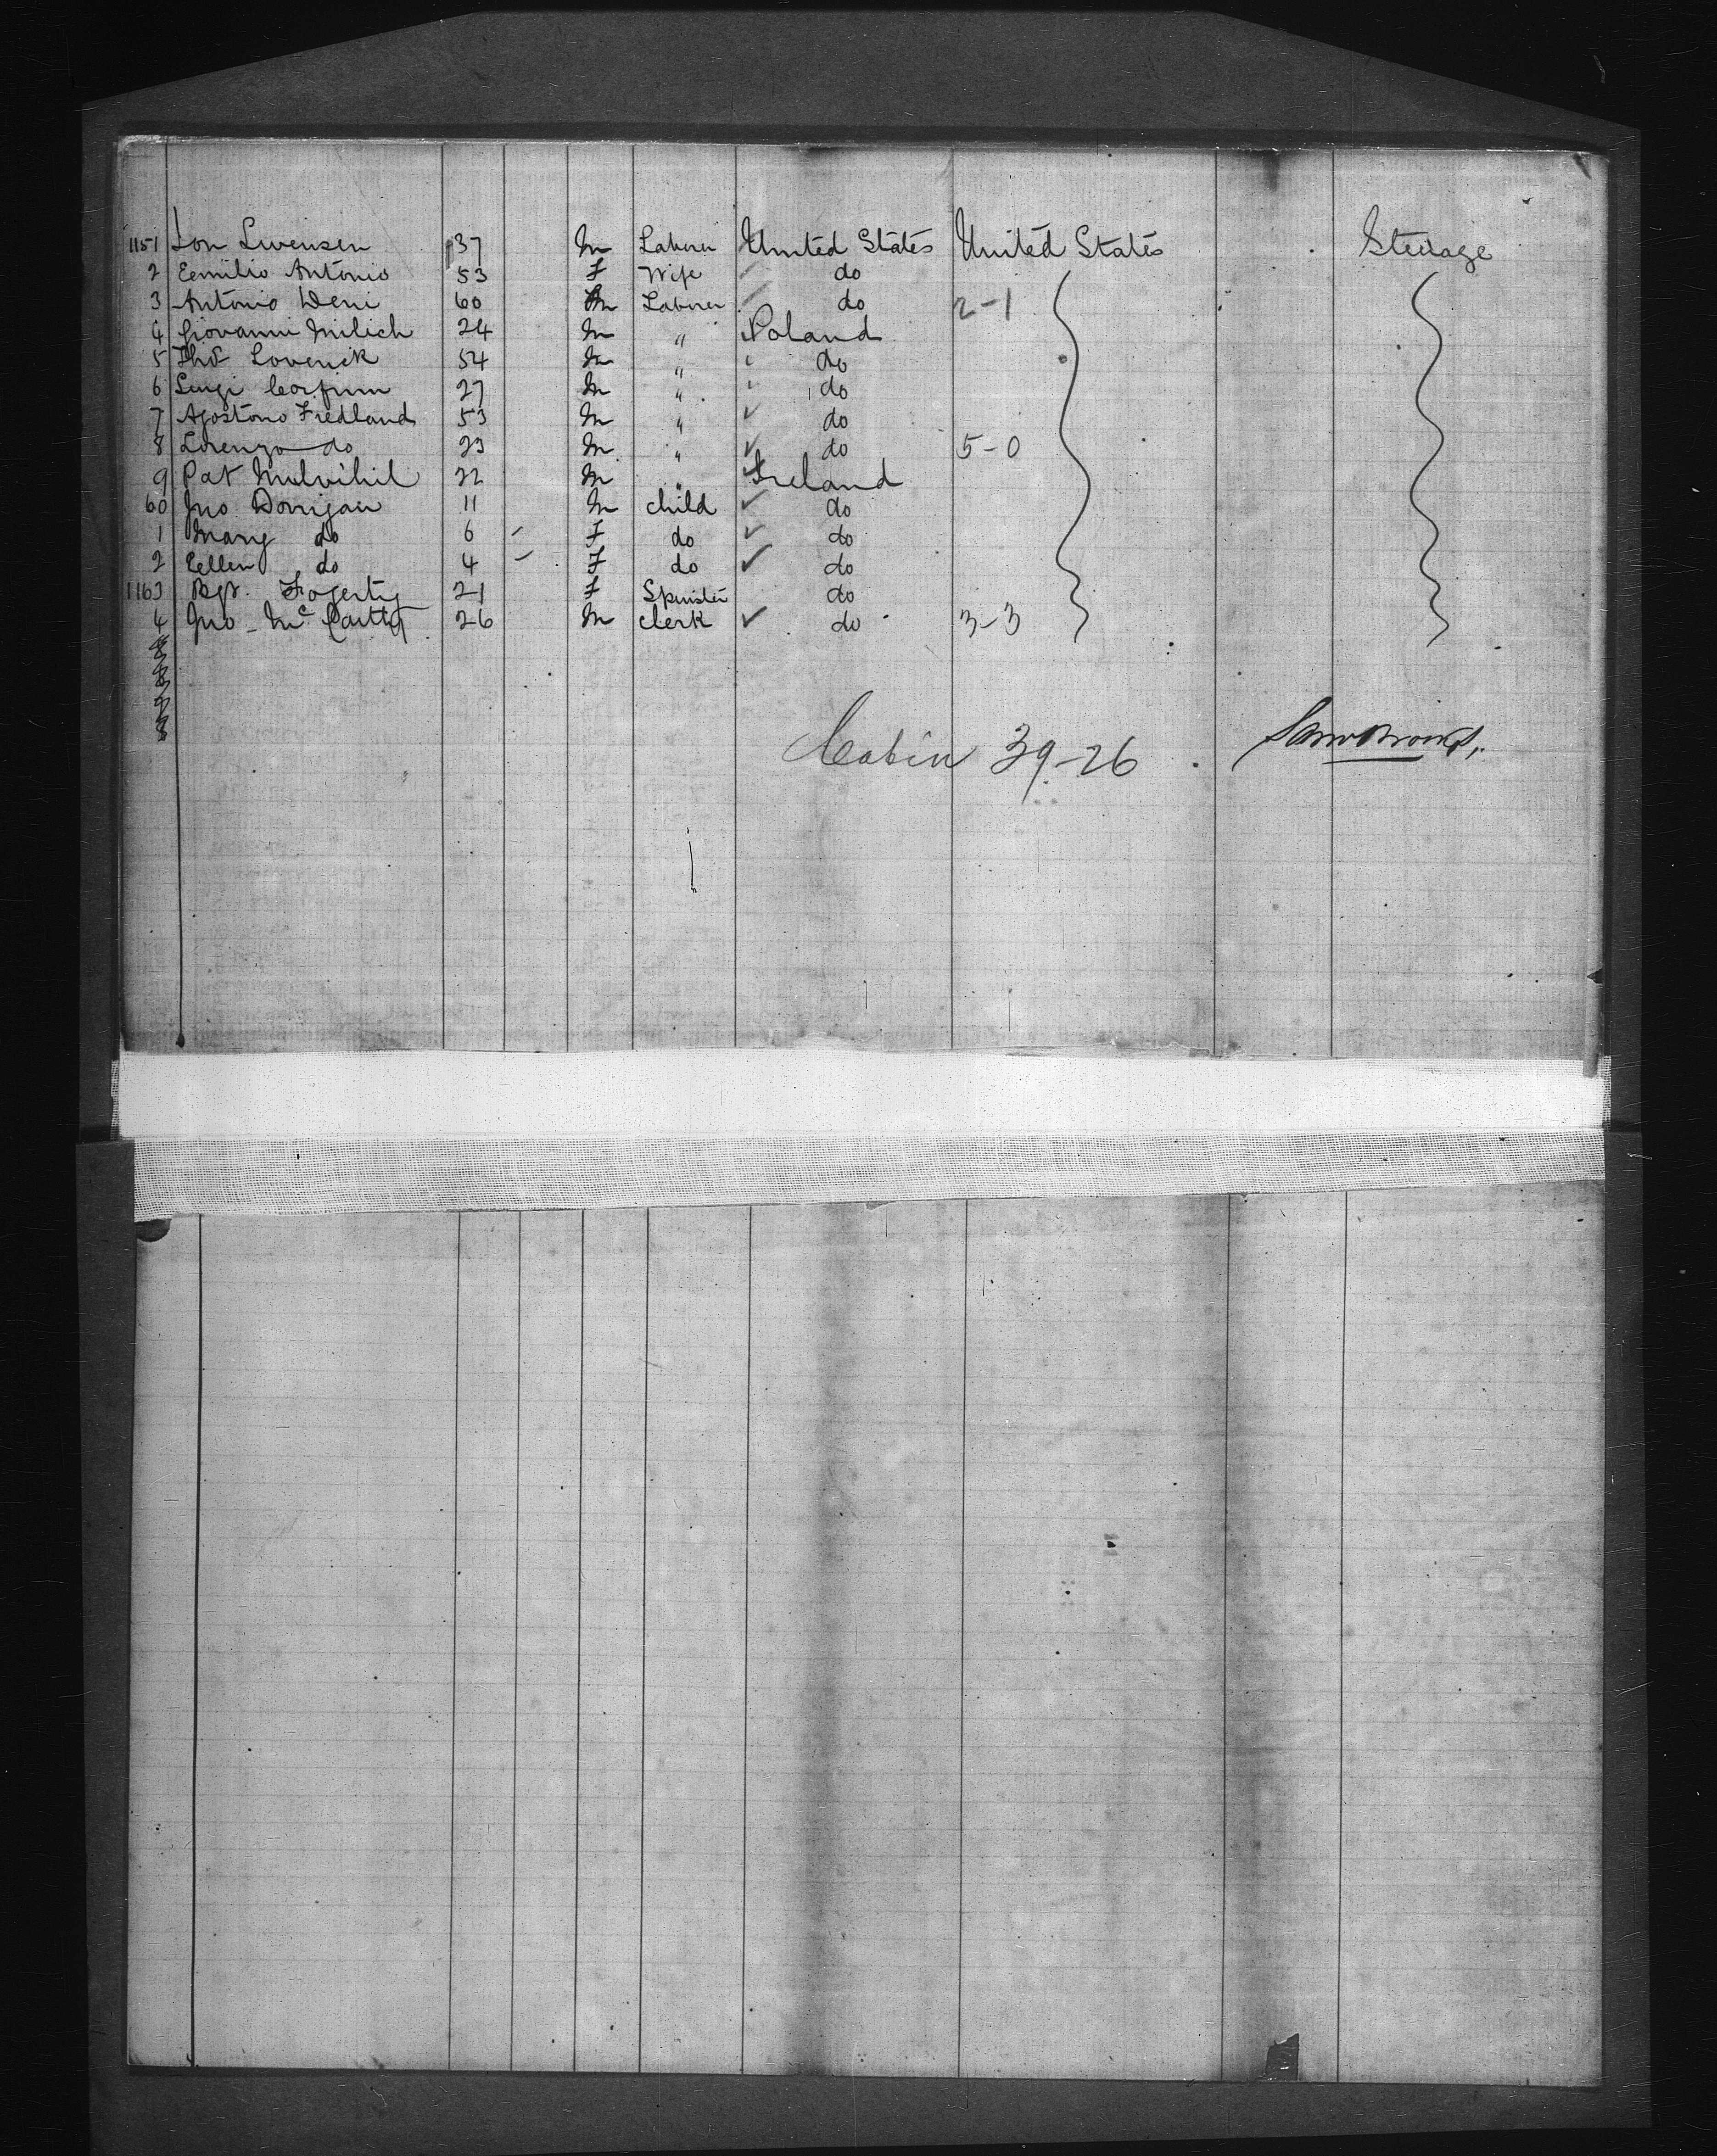 1151 Lon Swensen 37 M Laborer United States United States Steerage
2 Eemilio Antonio 53 F Wife do
3 Antonio Deni 60 M Laborer do 2-1
4 Giovanni Milich 24 M " Poland
5 Thos Lovenick 54 M " do
6 Luigi 27 M " do
7 Agostono Fredland 53 M " do
8 Lorenzo do 23 M " do 5-0
9 Pat Mulvihil 22 M " Ireland
60 Jno Donijan 11 M child do
1 Mary do 6 - F do do
2 Eellen do 4 - F do do
1163 Bgt. Fogerty 21 F Spinster do
4 Jno - McCartty 26 M clerk do 3-3
Cabin 39-26